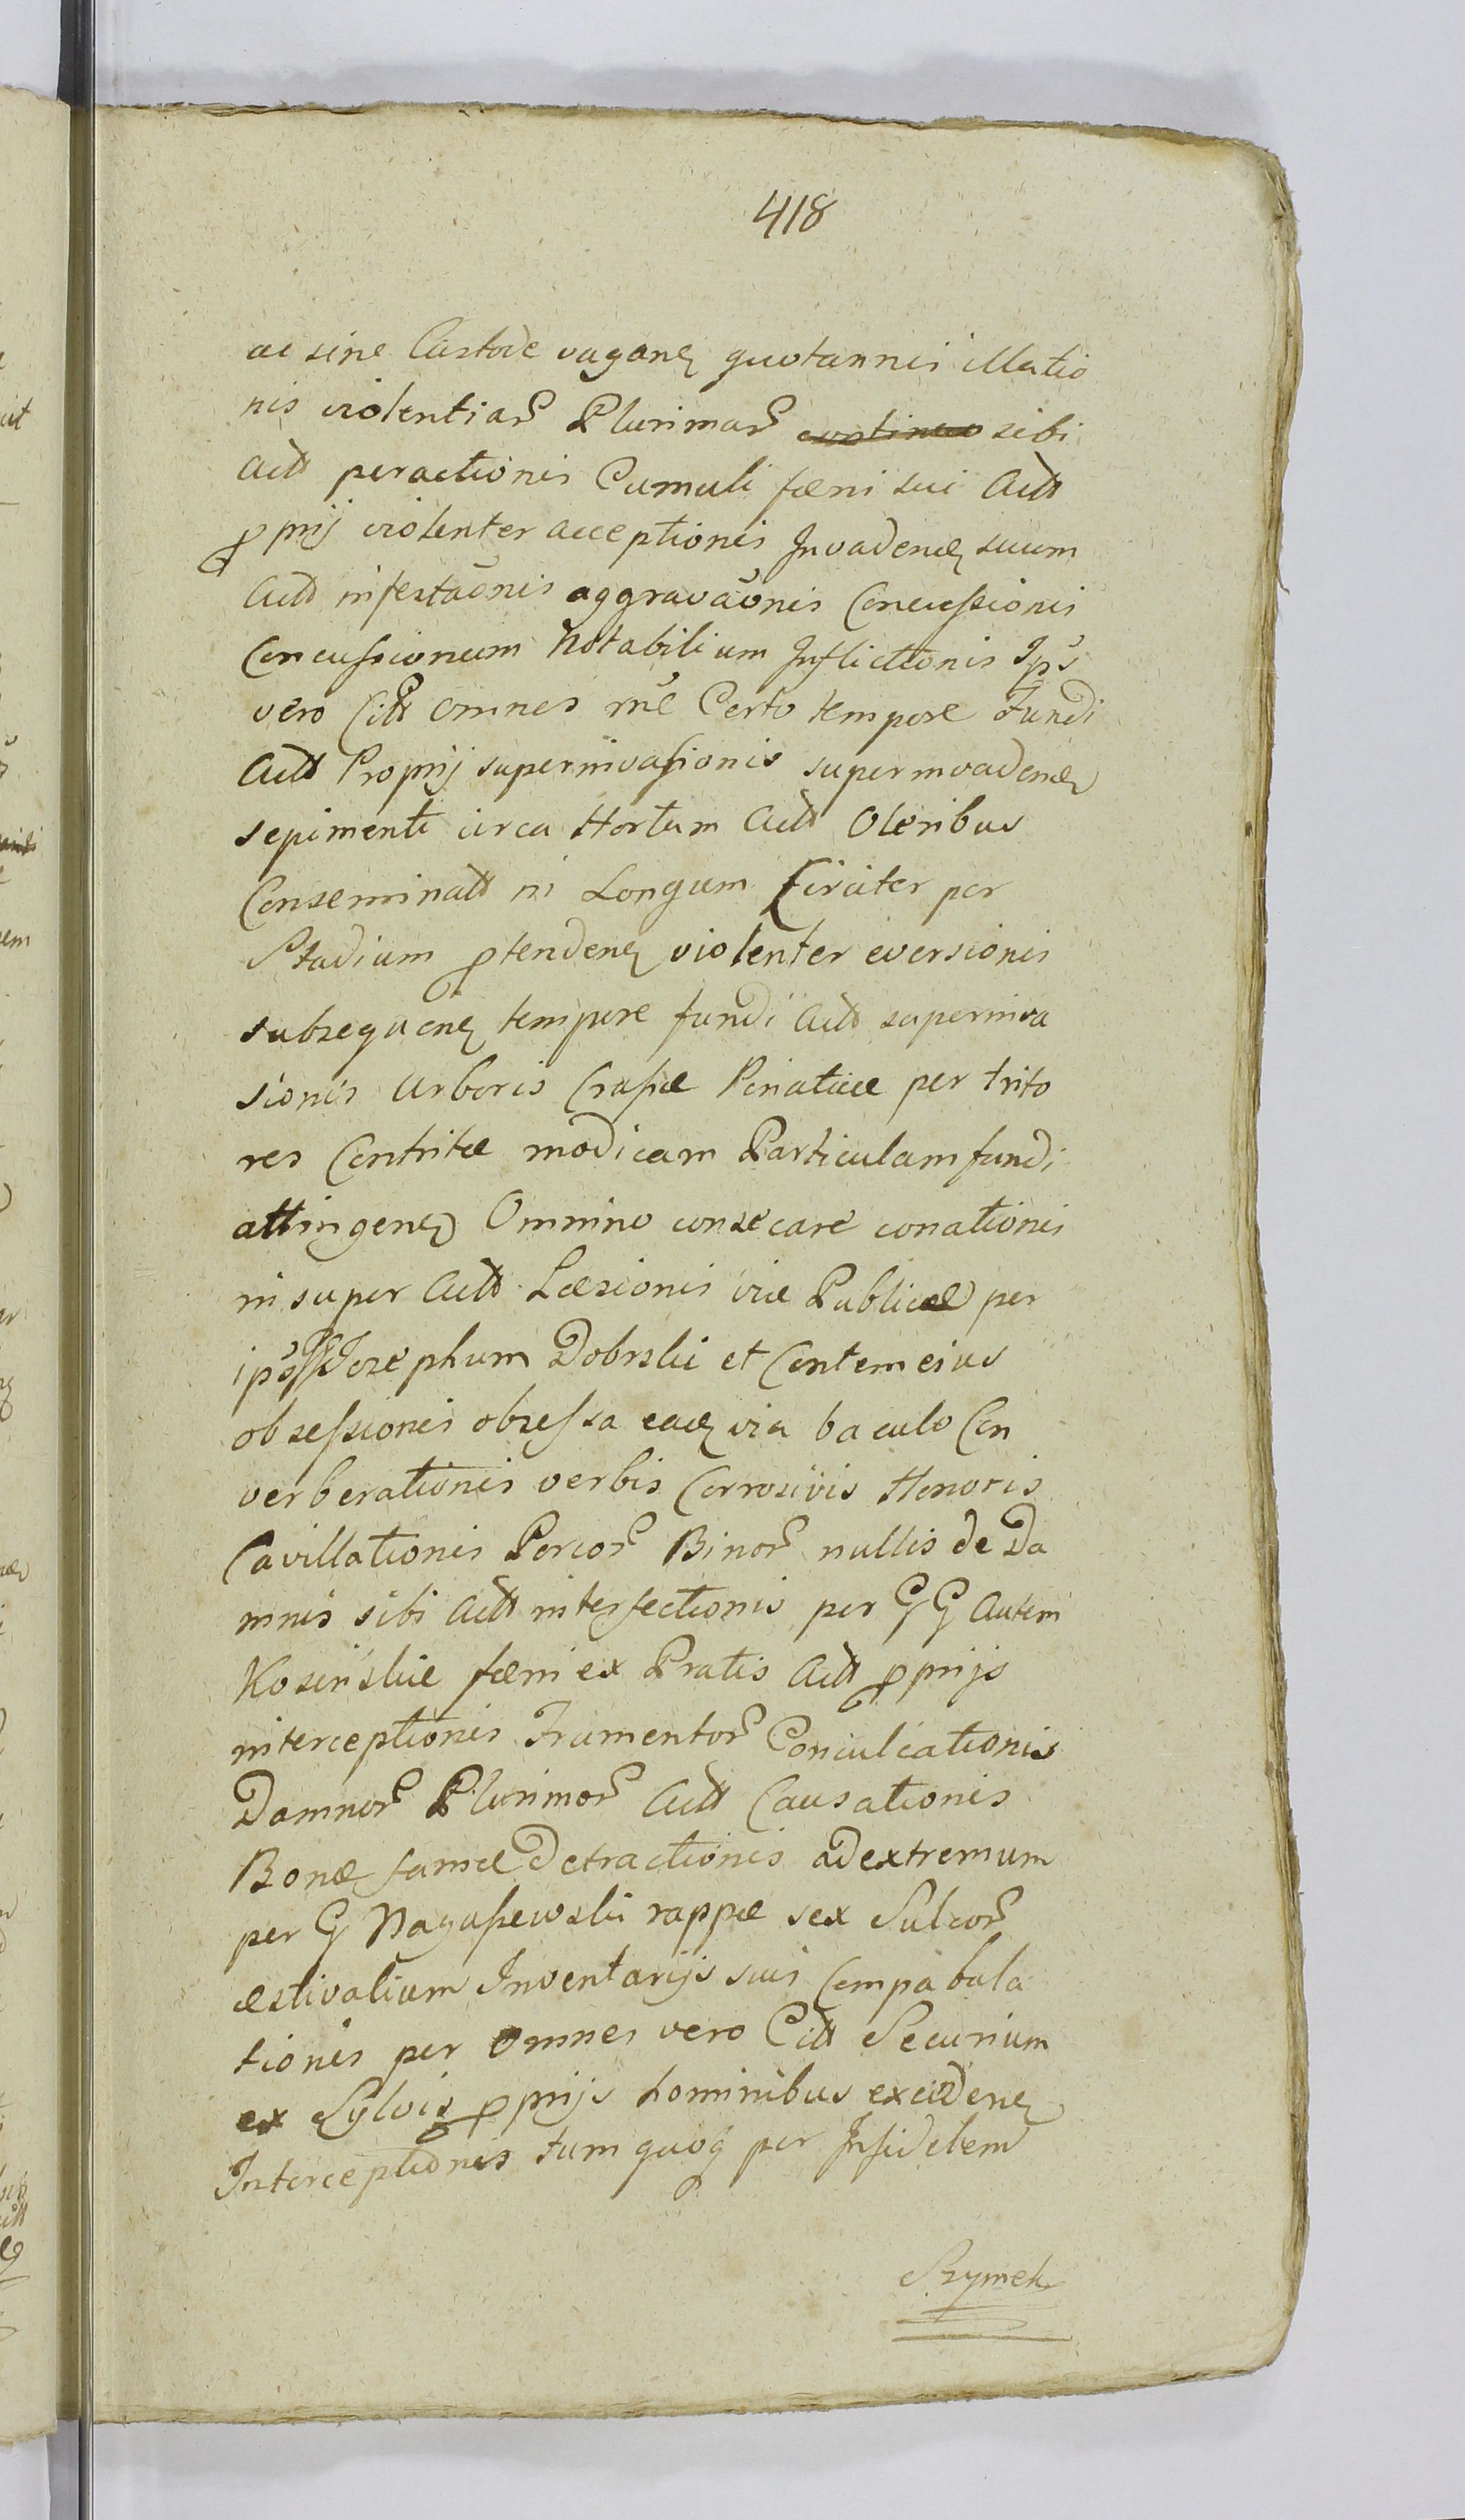 418
ac sine Custode vagané quotannis illatio
nis violentiar Plurimar sibi
Actt peractionis Cumuli fæni sui Actt
pprij violenter acceptionis Invadené suum
Actt infestaõnis aggravaõnis Concussionis
Concussionum Notabilium Inflictionis Ips
vero Citt omnes rñe Certo tempore Fundi
Actt Proprij superinvasionis superinvadené
sepimenti circa Hortum Actt Oleribus
Conseminatt in Longum Circiter per
Stadium ptendené violenter eversionis
subsequené tempore fundi Actt superinva
sionis Arboris Crassæ Pinaticæ per trito
res Contritæ modicam Particulam fundi
attingené Omnino consecare conationis
insuper Actt Læsionis viæ Publicæ per
ips G Josephum Dobrski et Contem eius
obsessionis obsessa eaé via baculo Con
verberationis verbis Corrosivis Honoris
Cavillationis Porcor Binor nullis de Da
mnis sibi Actt interfectionis per GG Autem
Kosinskie fæni ex Pratis Actt pprijs
interceptionis Frumentor Conculcationis
Damnor Plurimor Actt Causationis
Bonæ famæ Detractionis ad extremum
per G Magussewski rappæ sex Sulcor
æstivalium Inventarijs suis Compabula
tionis per omnes vero Citt Securium
ex Sylvis pprijs hominibus excidené
Interceptionis tum quoq per Infidelem
Szymek